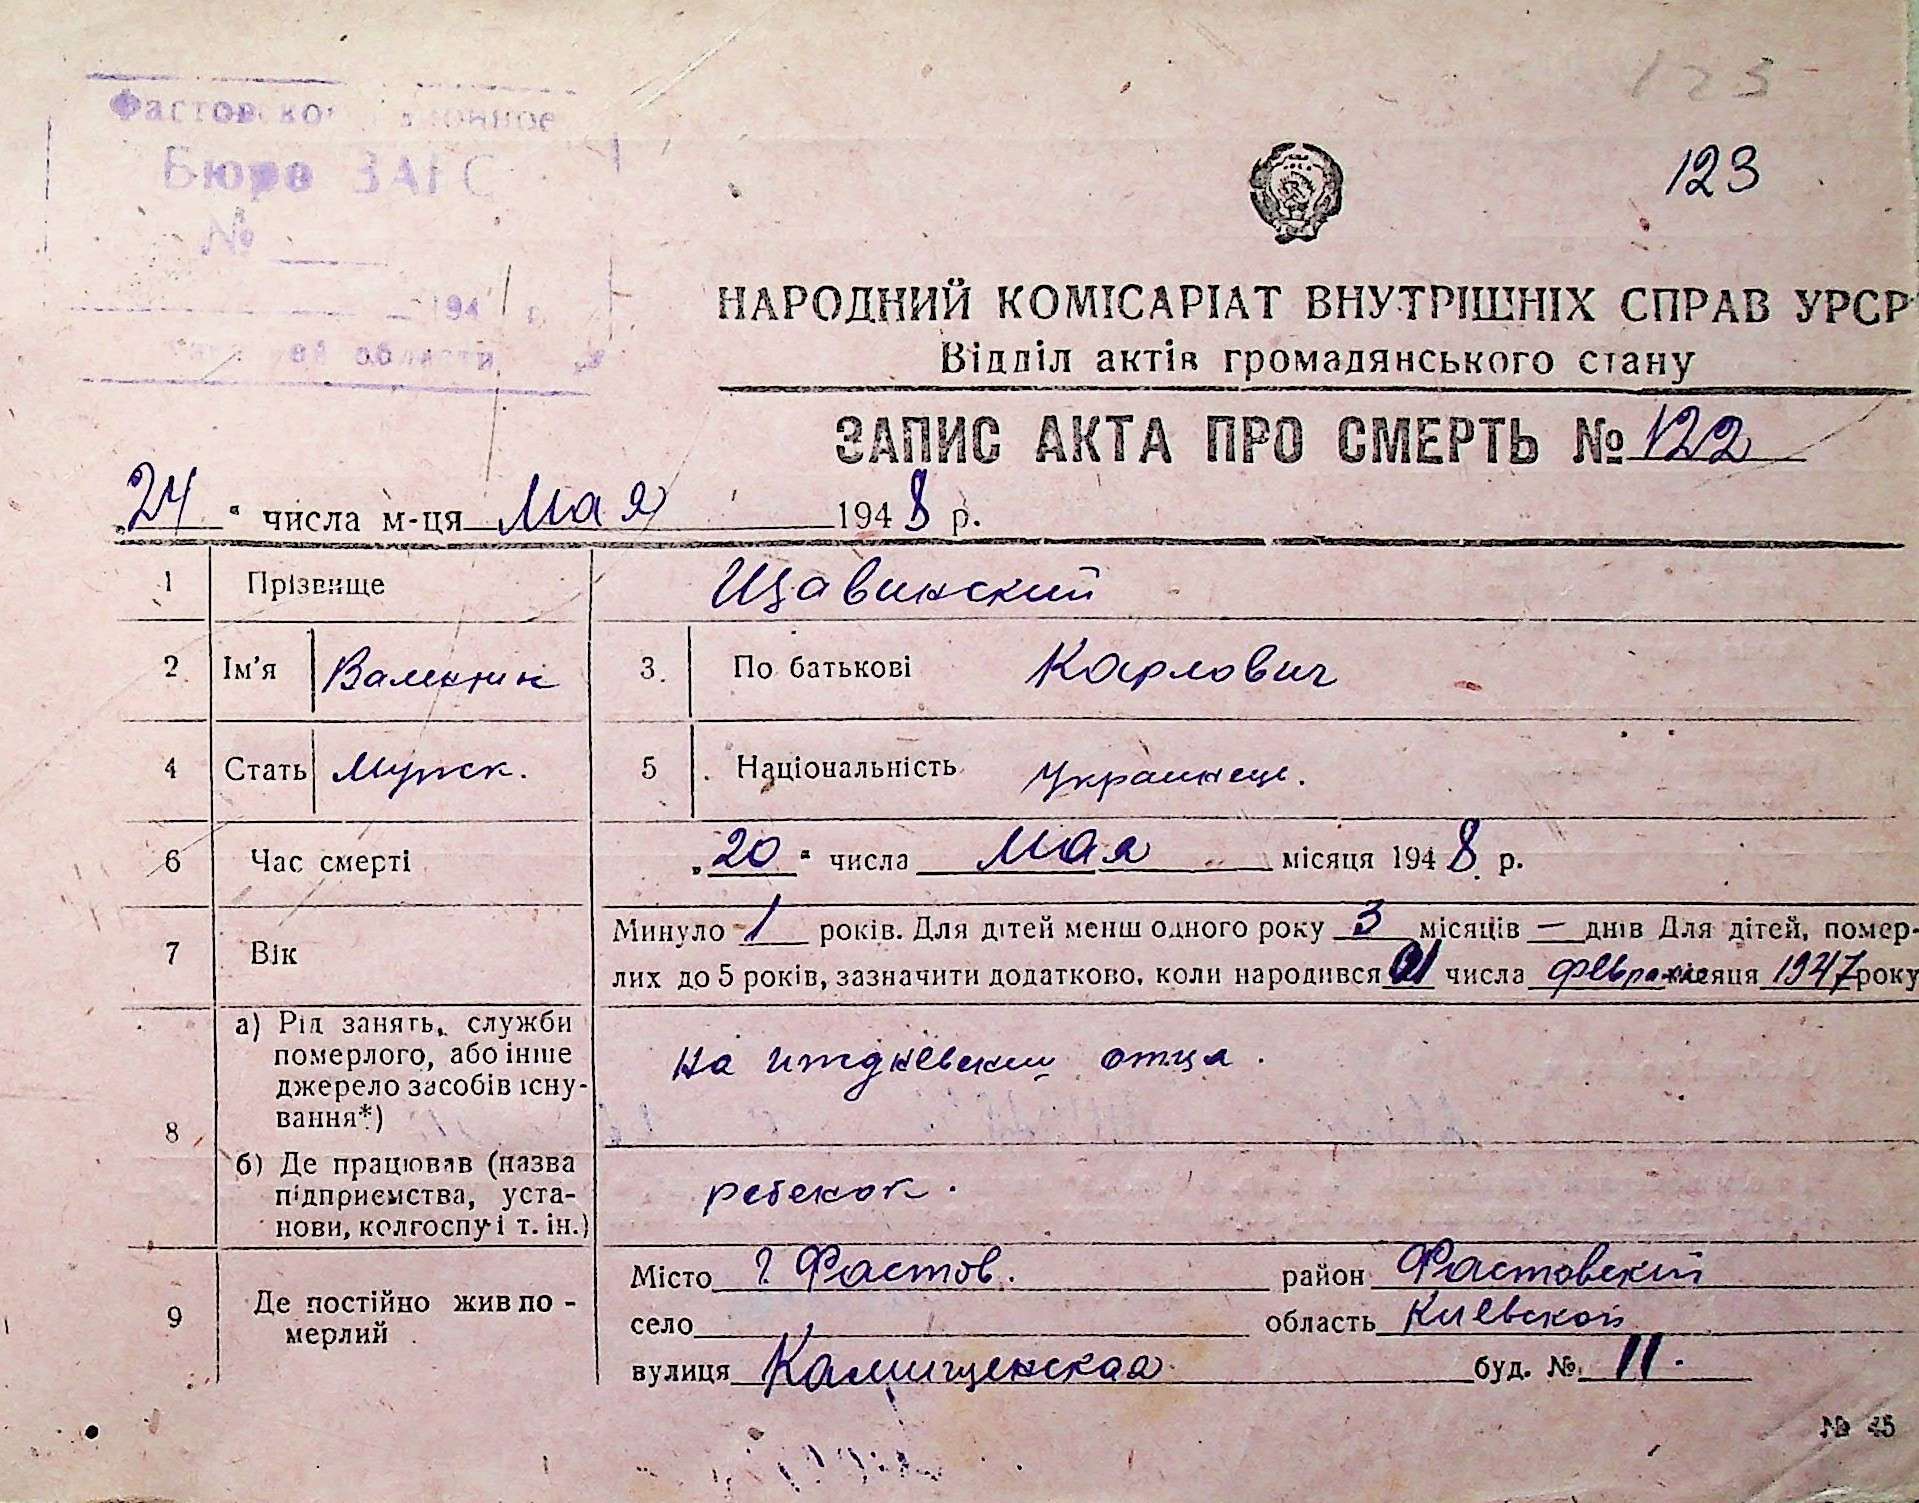 123
Бюро ЗАГС
№
123
194 г.
области
НАРОДНИЙ КОМІСАРІАТ ВНУТРІШНІХ СПРАВ УРСР
Відділ актів громадянського стану
ЗАПИС АКТА ПРО СМЕРТЬ № 122
„24“ числа м-ця Мая 1948 р.
1 Прізвище Щавинский
2 Ім'я Валентин 3. По батькові Карлович
4 Стать Мужск. 5 Національність украинец.
6 Час смерті „20“ числа Мая місяця 1948 р.
7 Вік Минуло 1 років. Для дітей менш одного року 3 місяців — днів Для дітей, помер-
лих до 5 років, зазначити додатково, коли народився числа февраля місяця 1947 року
8 а) Рід занять, служби
померлого, або інше
джерело засобів існу-
вання*)
на иждивении отца.
б) Де працював (назва
підприємства, уста-
нови, колгоспу і т. ін.)
ребенок.
9 Де постійно жив по-
мерлий
Місто г. Фастов. район Фастовский
село область Киевской
вулиця буд. № 11.
№ 45